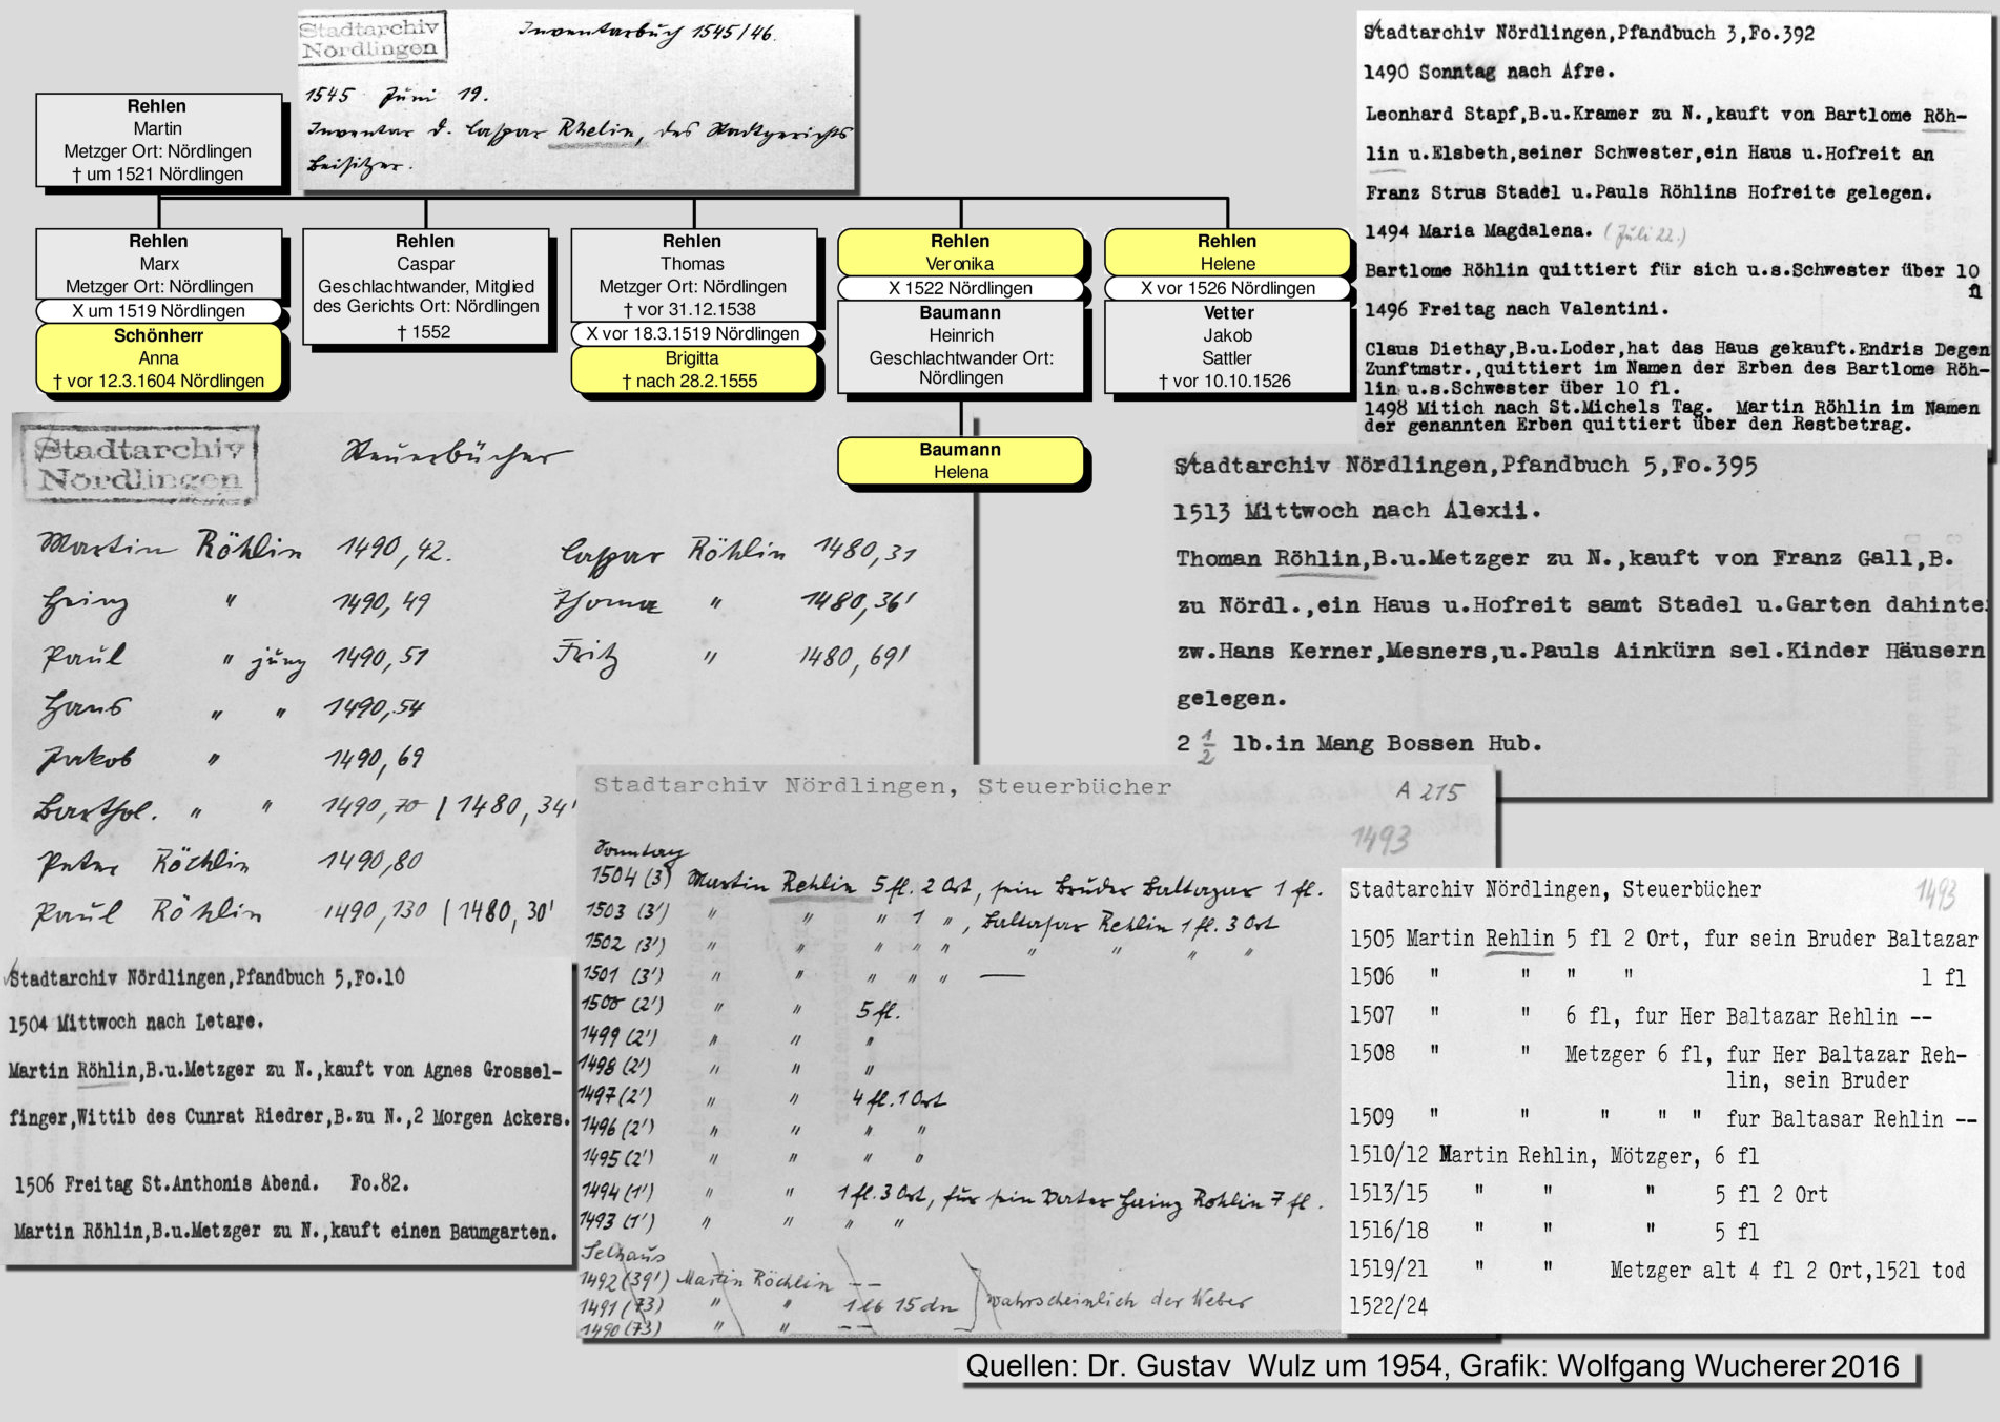 Stadtarchiv
Nördlingen
Inventarbuch 1545/46.
1545 Juni 19.
Inventar d. Caspar Rhelin, des Stadtgerichts
Beisitzer.
Rehlen
Martin
Metzger Ort: Nördlingen
† um 1521 Nördlingen
Rehlen
Marx
Metzger Ort: Nördlingen
X um 1519 Nördlingen
Schönherr
Anna
† vor 12.3.1604 Nördlingen
Rehlen
Caspar
Geschlachtwander, Mitglied
des Gerichts Ort: Nördlingen
† 1552
Rehlen
Thomas
Metzger Ort: Nördlingen
† vor 31.12.1538
X vor 18.3.1519 Nördlingen
Brigitta
† nach 28.2.1555
Rehlen
Veronika
X 1522 Nördlingen
Baumann
Heinrich
Geschlachtwander Ort:
Nördlingen
Baumann
Helena
Rehlen
Helene
X vor 1526 Nördlingen
Vetter
Jakob
Sattler
† vor 10.10.1526
Stadtarchiv Nördlingen,Pfandbuch 3,Fo.392
1490 Sonntag nach Afre.
Leonhard Stapf,B.u.Kramer zu N.,kauft von Bartlome Röh-
lin u.Elsbeth,seiner Schwester,ein Haus u.Hofreit an
Franz Strus Stadel u.Pauls Röhlins Hofreite gelegen.
1494 Maria Magdalena. (Juli 22.)
Bartlome Röhlin quittiert für sich u.s.Schwester über 10
fl
1496 Freitag nach Valentini.
Claus Diethay,B.u.Loder,hat das Haus gekauft.Endris Degen
Zunftmstr.,quittiert im Namen der Erben des Bartlome Röh-
lin u.s.Schwester über 10 fl.
1498 Mitich nach St.Michels Tag. Martin Röhlin im Namen
der genannten Erben quittiert über den Restbetrag.
Stadtarchiv Nördlingen,Pfandbuch 5,Fo.395
1513 Mittwoch nach Alexii.
Thoman Röhlin,B.u.Metzger zu N.,kauft von Franz Gall,B.
zu Nördl.,ein Haus u.Hofreit samt Stadel u.Garten dahinte
zw.Hans Kerner,Mesners,u.Pauls Ainkürn sel.Kinder Häusern
gelegen.
2 1/2 lb.in Mang Bossen Hub.
Stadtarchiv
Nördlingen
Steuerbücher
Martin Röhlin 1490, 42. Caspar Röhlin 1480, 31
Heinz " 1490, 49 Thoma " 1480, 36'
Paul " jung 1490, 51 Fritz " 1480, 69'
Hans " " 1490, 54
Jakob " 1490, 69
Barthol. " " 1490, 70 / 1480, 34'
Peter Röchlin 1490, 80
Paul Röhlin 1490, 130 / 1480, 30'
Stadtarchiv Nördlingen,Pfandbuch 5,Fo.10
1504 Mittwoch nach Letare.
Martin Röhlin,B.u.Metzger zu N.,kauft von Agnes Grossel-
finger,Wittib des Cunrat Riedrer,B.zu N.,2 Morgen Ackers.
1506 Freitag St.Anthonis Abend. Fo.82.
Martin Röhlin,B.u.Metzger zu N.,kauft einen Baumgarten.
Stadtarchiv Nördlingen, Steuerbücher A 215
1493
1504 (3) Martin Rehlin 5 fl. 2 Ort, sein Bruder Baltazar 1 fl.
1503 (3') " " " 1 ", Baltasar Rehlin 1 fl. 3 Ort
1502 (3') " " " " " " " " "
1501 (3') " " " " " —
1500 (2') " " 5 fl.
1499 (2') " " "
1498 (2') " " "
1497 (2') " " 4 fl. 1 Ort
1496 (2') " " " "
1495 (2') " " " "
1494 (1') " " 1 fl. 3 Ort, für sein Vater Hainz Rohlin 7 fl.
1493 (1') " " " "
Selhaus
1492 (39') Martin Röchlin --
1491 (73) " " 1 lb 15 dn wahrscheinlich der Weber
1490 (73) " " --
Stadtarchiv Nördlingen, Steuerbücher 1493
1505 Martin Rehlin 5 fl 2 Ort, fur sein Bruder Baltazar
1506 " " " " 1 fl
1507 " " 6 fl, fur Her Baltazar Rehlin --
1508 " " Metzger 6 fl, fur Her Baltazar Reh-
lin, sein Bruder
1509 " " " " " fur Baltasar Rehlin --
1510/12 Martin Rehlin, Mötzger, 6 fl
1513/15 " " " 5 fl 2 Ort
1516/18 " " " 5 fl
1519/21 " " Metzger alt 4 fl 2 Ort,1521 tod
1522/24
Quellen: Dr. Gustav Wulz um 1954, Grafik: Wolfgang Wucherer 2016